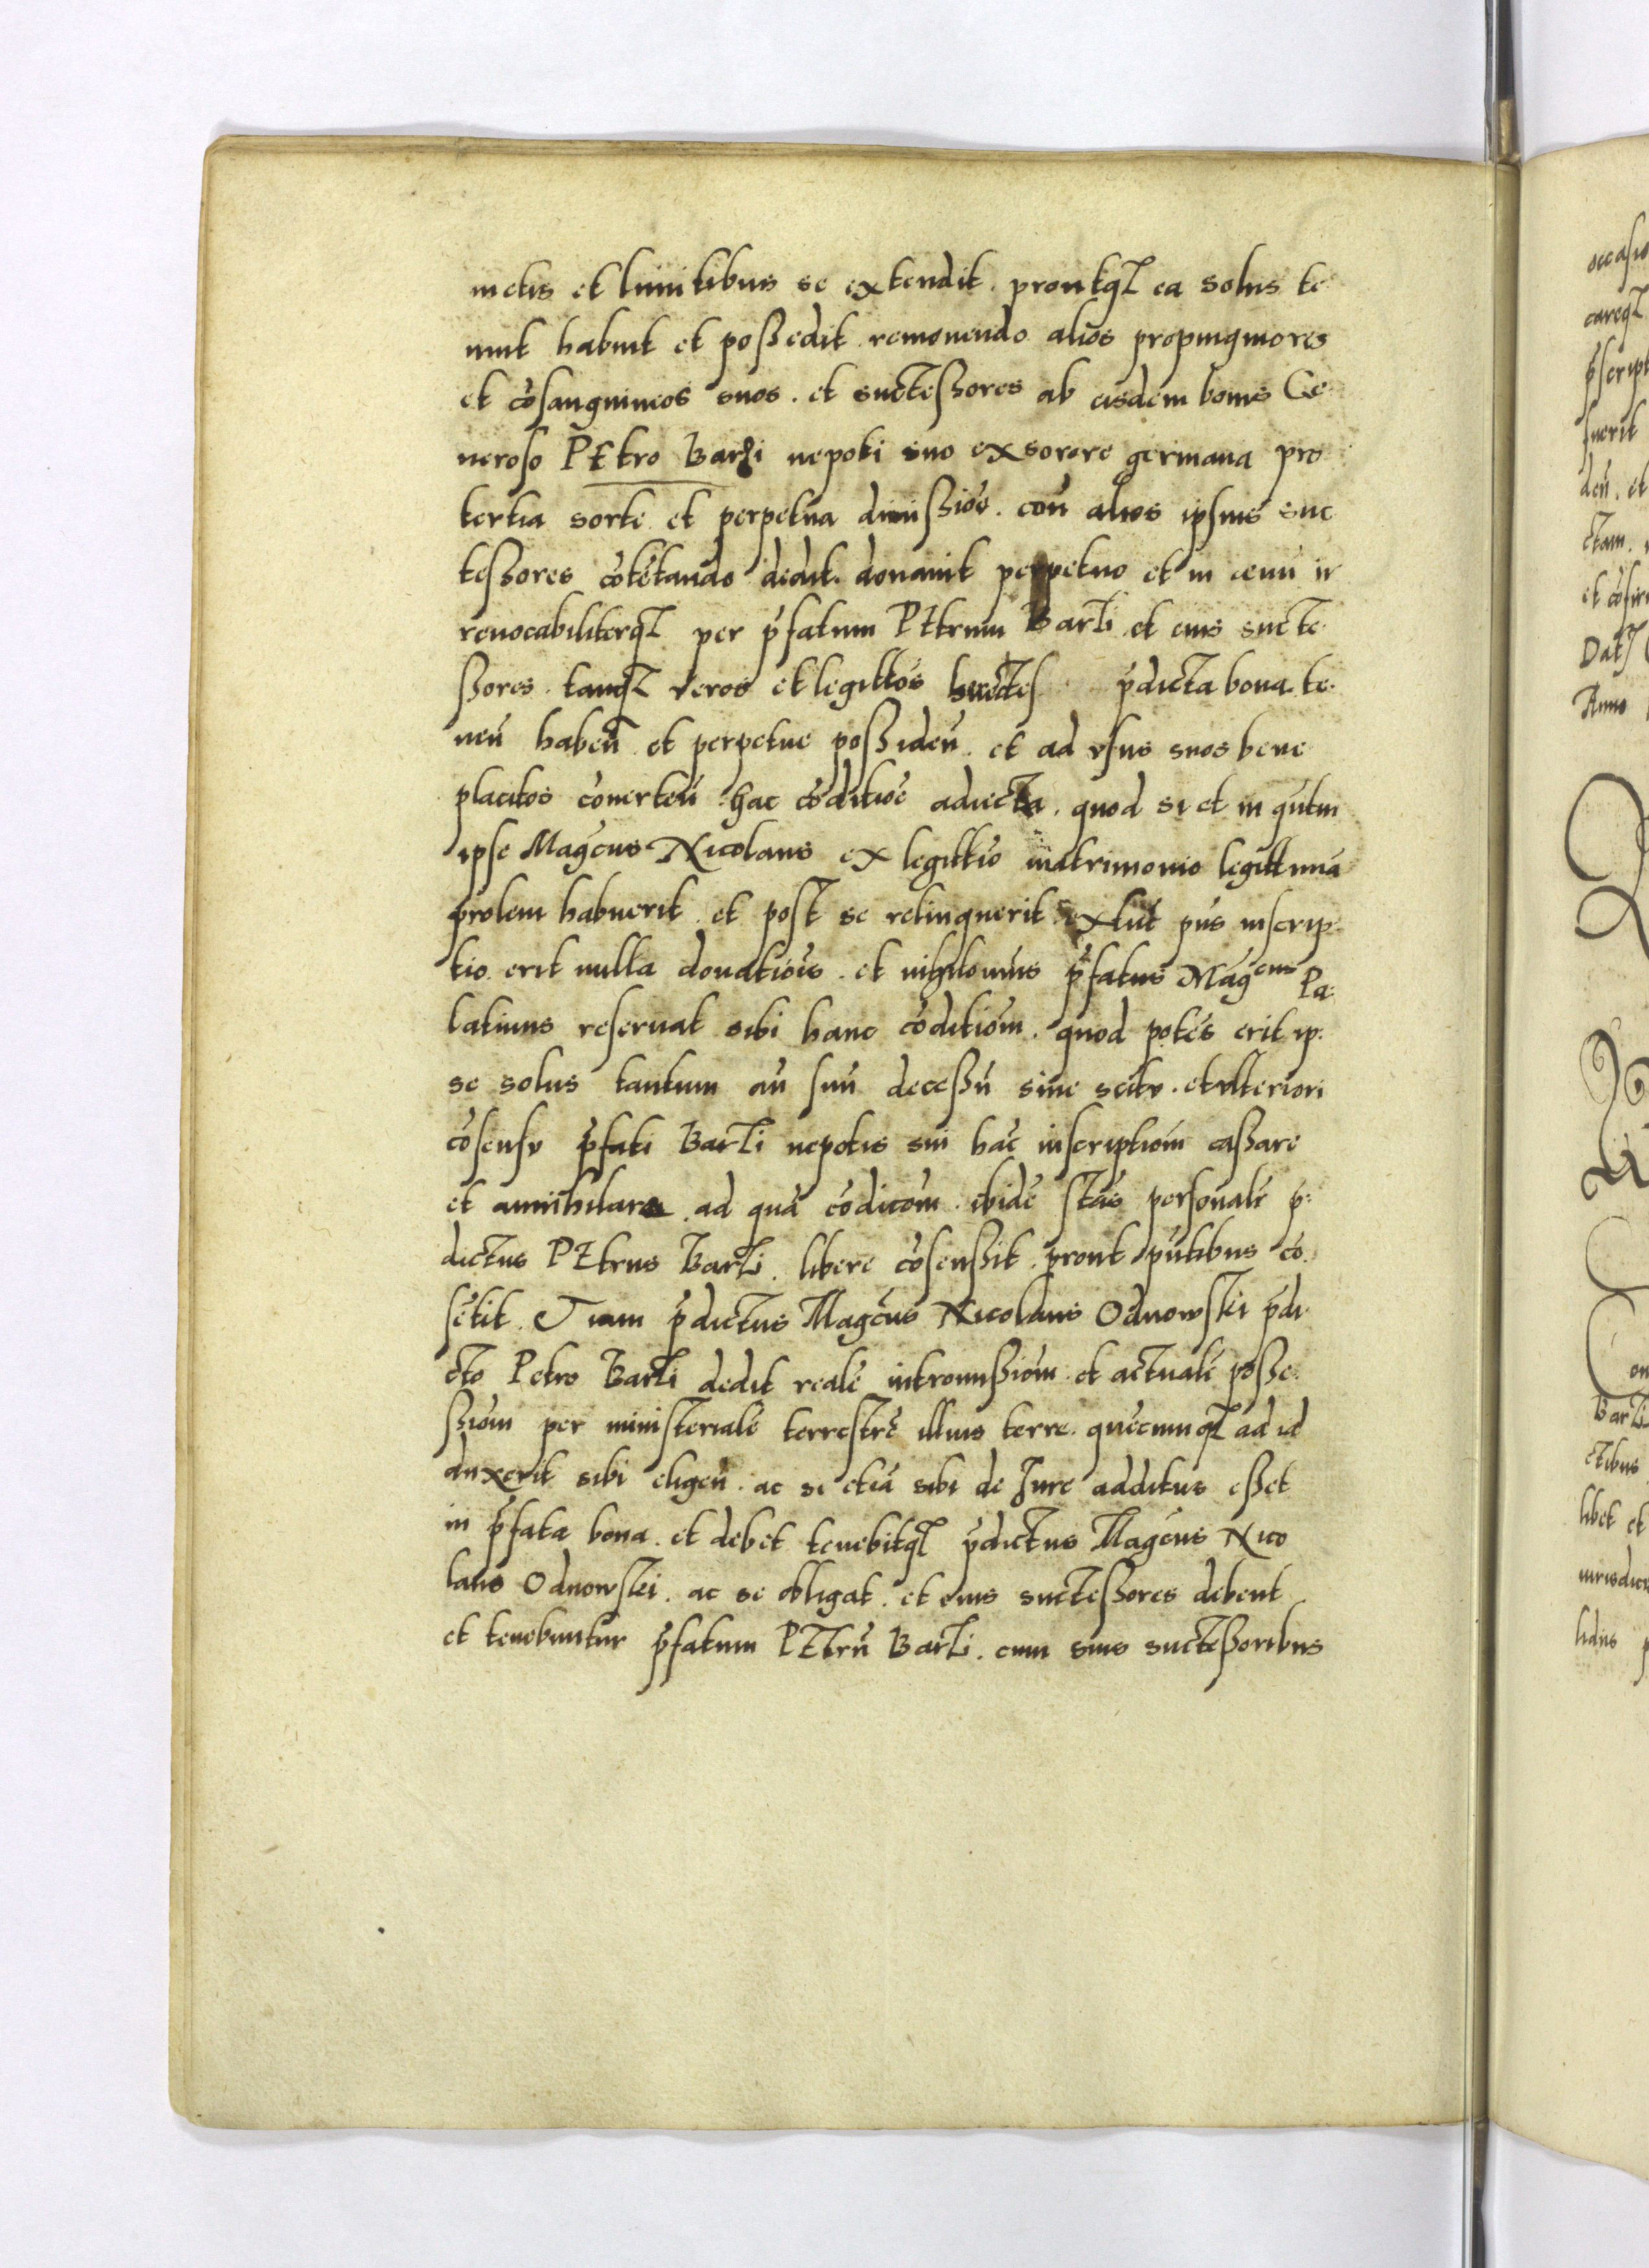 metis et limitibus se extendit . proutq3 ea solus te
nuit habuit et possedit . remouendo alios propinquiores
et cōsanguineos suos . et suctessores ab eisdem bonis Ge
neroso PEtro Barzi nepoti suo ex sorore germana pro
tertia sorte et perpetua diuissiōe . con alios ipsius suc
tessores cōtētando dedit donauit perpetuo et in aeuū ir
reuocabiliterq3 per p̄fatum PEtrum Barzi et eius sucte
ssores . tanq3 veros et legittōs p̄dicta bona te
neñ habeñ et perpetue possideñ . et ad vsus suos bene
placitos cōuerteñ hac cōditiōe adiecta . quod si et in q̄ntm
ipse Magcus Nicolaus ex legittīo matrimonio legittimā
prolem habuerit et post se relinquerit . extūc p̄ns inscrip
tio . erit nulla donatiōis . et nihilomīus p̄fatus Magcus Pa
latinus reseruat sibi hanc cōditiōm . quod potēs erit ip
se solus tantum añ suū decessū sine scitv . et vlteriori
cōsensv p̄fati Barzi nepotis sui hāc inscriptiōm cassare
et annihilare . ad quā cōdicōm . ibidē stās personalr̄ p̄
dictus PEtrus Barzi . libere cōsenssit . prout p̄ntibus cō
sētit . Jam p̄dictus Magcus Nicolaus Odnowski p̄di
cto Petro Barzi dedit realē intromissiōm et actualē posse
ssiōm per ministerialē terrestrē illius terre . quēcumq3 ad id
duxerit sibi eligeñ . ac si etiā sibi de Jure additus esset
in p̄fata bona . et debet tenebitq3 p̄dictus Magcus Nico
laus Odnowski . ac se obligat . et eius suctessores debent
et tenebuntur p̄fatum PEtrū Barzi . cum suis suctessoribus